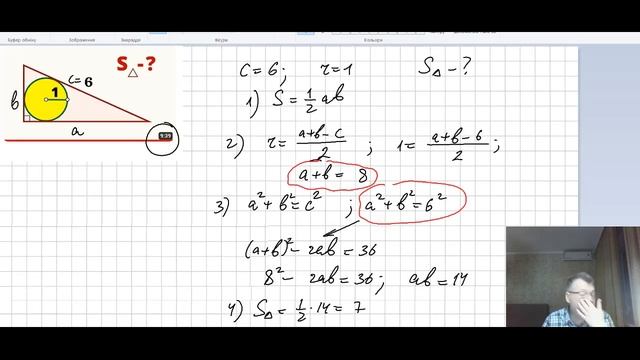 Буфер обміну
Зображення
Знаряддя
Фігури
Кольори
S△-?
c=6
1
в
a
c=6; r=1 S△-?
1) S=1/2 aв
2) r=(a+в-c)/2 ; 1=(a+в-6)/2 ;
a+в= 8
3) a²+в²=c² ; a²+в²=6²
(a+в)²-2aв=36
8²-2aв=36; aв=14
4) S△=1/2·14=7